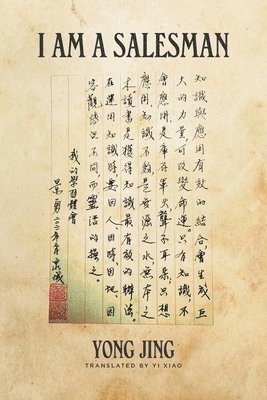 I AM A SALESMAN
知識與應用有效的結合,會生成巨
大的力量,可改變命運。只有知識,不
會應用,是 聾子耳朵,只想
應用,知識不夠,是無源之水無本之
木。讀書是獲得知識最有效的辦法。
在運用知識時,要因人、因時、因地、因
客觀情況不同而靈活的操之。
我的學習體會
景勇
YONG JING
TRANSLATED BY YI XIAO